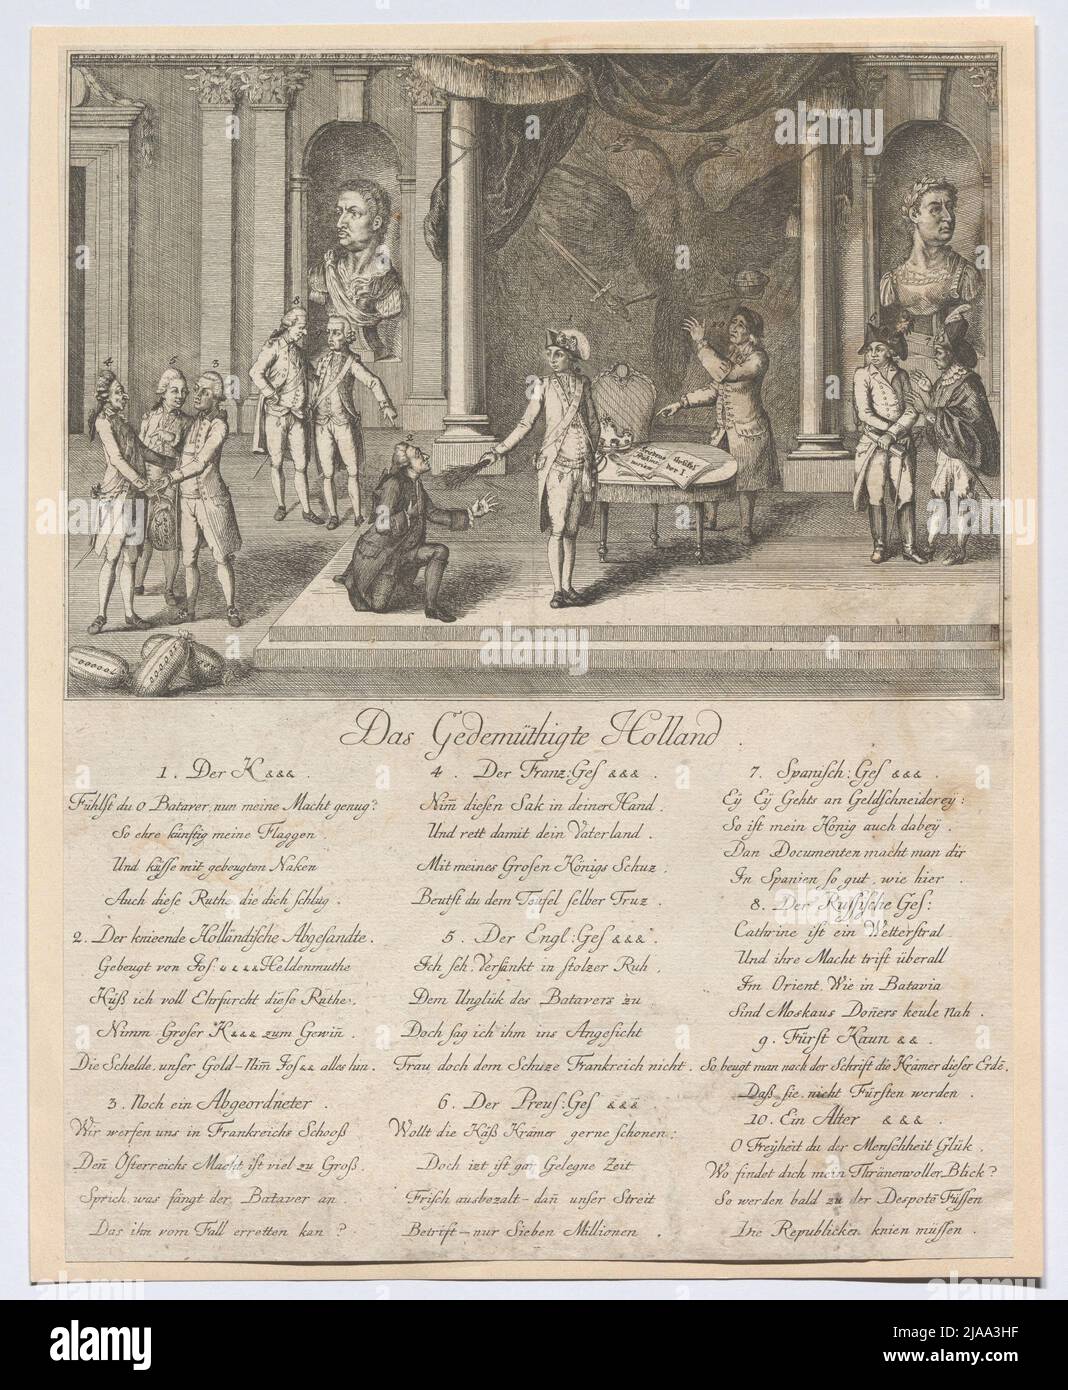 8
4
5
3
2
1
10
7
Das Gedemüthigte Holland.
1. Der K &&&.
Fühlst du O Bataver, nun meine Macht genug?
So ehre künftig meine Flaggen.
Und küsse mit gebeugten Naken
Auch diese Ruthe, die dich schlug.
2. Der knieende Holländische Abgesandte.
Gebeugt von Jos &&&& Heldenmuthe
Küß ich voll Ehrfurcht diese Ruthe.
Nimm Groser K&&& zum Gewiñ.
Die Schelde, unser Gold - Nim̃ Jos&& alles hin.
3. Noch ein Abgeordneter.
Wir werfen uns in Frankreichs Schooß
Deñ Österreichs Macht ist viel zu Groß.
Sprich, was fängt der Bataver an
Das ihn vom Fall erretten kan?
4. Der Franz: Ges &&&.
Nim̃ diesen Sak in deiner Hand.
Und rett damit dein Vaterland.
Mit meines Grosen Königs Schuz
Beutst du dem Teufel selber Truz.
5. Der Engl: Ges &&&.
Ich seh, Versänkt in stolzer Ruh,
Dem Unglük des Batavers zu
Doch sag ich ihm ins Angesicht
Trau doch dem Schuze Frankreich nicht.
6. Der Preus: Ges &&&.
Wollt die Käß Krämer gerne schonen:
Doch izt ist gar Gelegne Zeit
Frisch ausbezalt - dañ unser Streit
Betrift - nur Sieben Millionen.
7. Spanisch: Ges &&&.
Eÿ Eÿ Gehts an Geldschneidereÿ:
So ist mein König auch dabeÿ.
Dan Documenten macht man dir
In Spanien so gut, wie hier.
8. Der Russische Ges:
Cathrine ist ein Wetterstral
Und ihre Macht trift überall
Im Orient, Wie in Batavia
Sind Moskaus Doñers keule nah.
9. Fürst Kaun &&.
So beugt man nach der Schrift die Krämer dieser Erde,
Daß sie nicht Fürsten werden.
10. Ein Alter &&&.
O Freÿheit du der Menschheit Glük,
Wo findet dich mein Thränenvoller Blick?
So werden bald zu der Despotẽ Füssen
Die Republicken knien müssen.
alamy
Image ID: 2JAA3HF
www.alamy.com